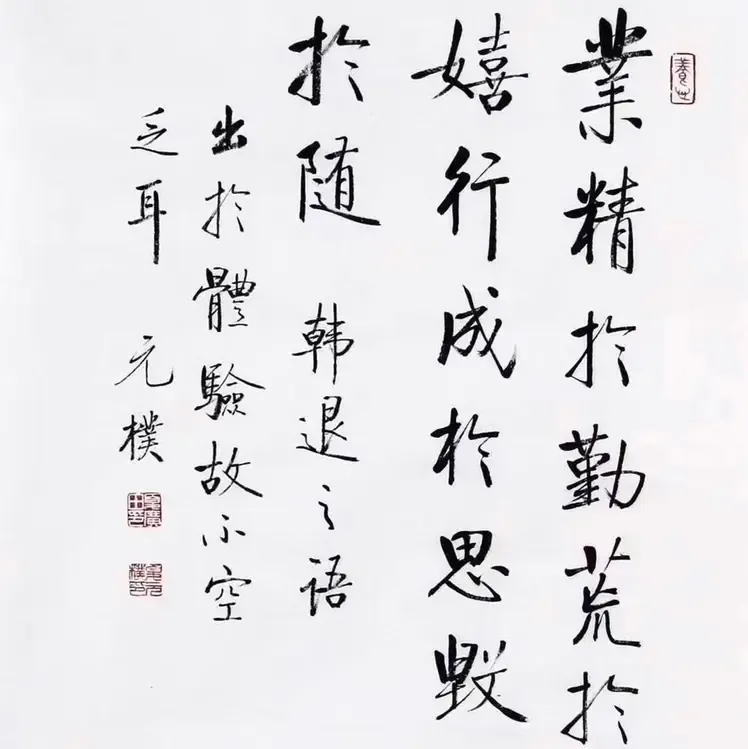 業精於勤荒於
嬉行成於思毀
於随 韩退之语
出於體驗故不空
乏耳 元樸